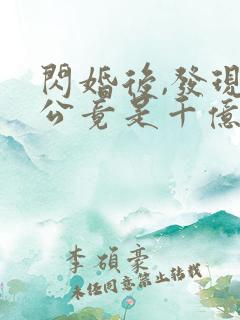 閃婚後,發現
公竟是千億
李碩豪
未经同意禁止转载